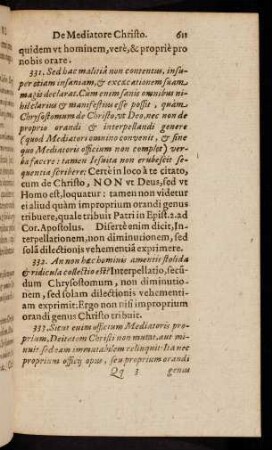 De Mediatore Christo. 611
quidem vt hominem, verè, & propriè pro
nobis orare.
331. Sed hac malitiâ non contentus, insu-
per etiam insaniam, & excæcationem suam
magis declarat. Cum enim sanis omnibus ni-
hil clarius & manifestius esse possit, quàm
Chrysostomum de Christo, vt Deo, nec non de
proprio orandi & interpellandi genere
(quod Mediatori omnino conuenit, & sine
quo Mediatoris officium non complet) ver-
ba facere: tamen Iesuita non erubescit se-
quentia scribere; Certè in loco à te citato,
cum de Christo, NON vt Deus, sed vt
Homo est, loquatur: tamen non videtur
ei aliud quàm improprium orandi genus
tribuere, quale tribuit Patri in Epist. 2. ad
Cor. Apostolus. Disertè enim dicit, In-
terpellationem, non diminutionem, sed
solâ dilectionis vehementiâ exprimere.
332. An non hæc hominis amentis stolida
& ridicula collectio est? Interpellatio, secũ-
dum Chrysostomum, non diminutio-
nem, sed solam dilectionis vehementi-
am exprimit: Ergo non nisi improprium
orandi genus Christo tribuit.
333. Sicut enim officium Mediatoris pro-
prium, Deitatem Christi non mutat, aut mi-
nuit, sed eam immutabilem relinquit: Ita nec
proprium officij opus, seu proprium orandi
Qq 3 genus